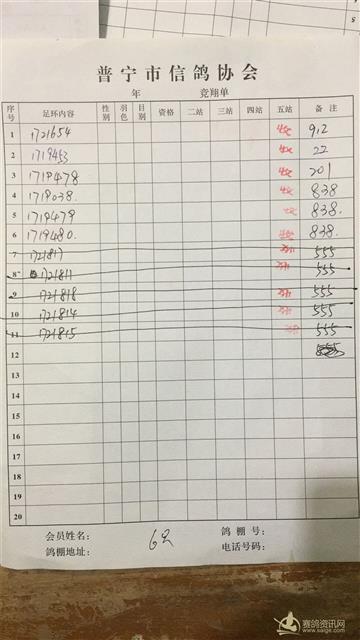 普宁市信鸽协会
年 竞翔单
序号 足环内容 性别 羽色 目别 资格 二站 三站 四站 五站 备注
1 1721654 912
2 1719453 22
3 1719478 201
4 1719038. 838
5 1719479 838.
6 1719480. 838.
7 1721817 555
8 1721811 555
9 1721818 555
10 1721814 555
11 1721815 555
12
13
14
15
16
17
18
19
20
会员姓名: 鸽棚号:
鸽棚地址: 电话号码:
赛鸽资讯网
www.saige.com